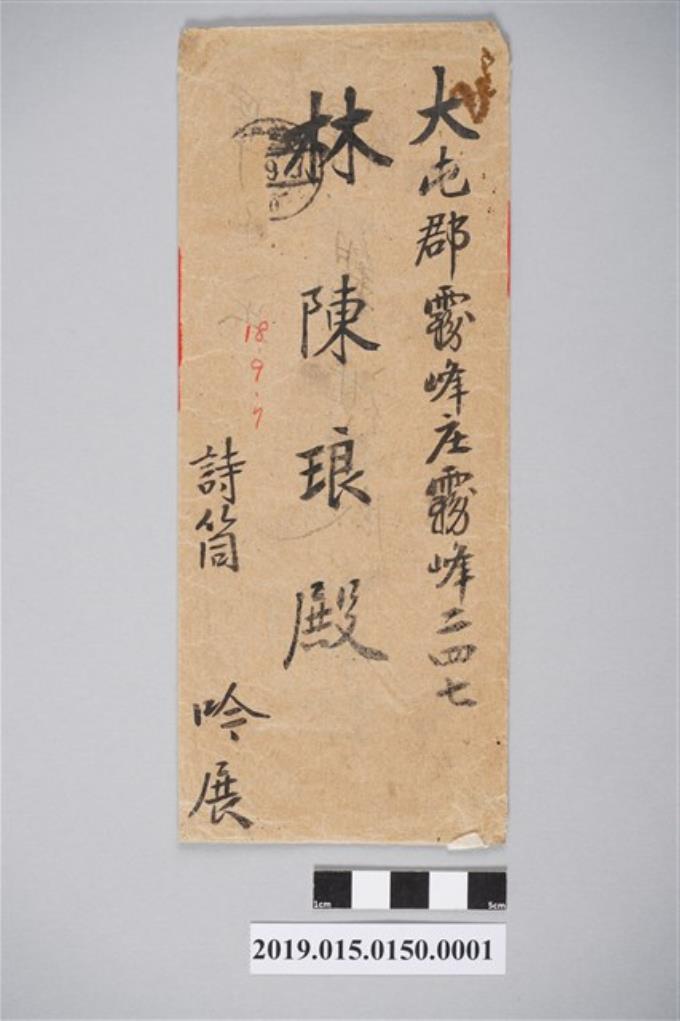 大屯郡霧峰庄霧峰二四七
林陳琅殿
18.9.7
詩筒 吟展
1cm
5cm
2019.015.0150.0001